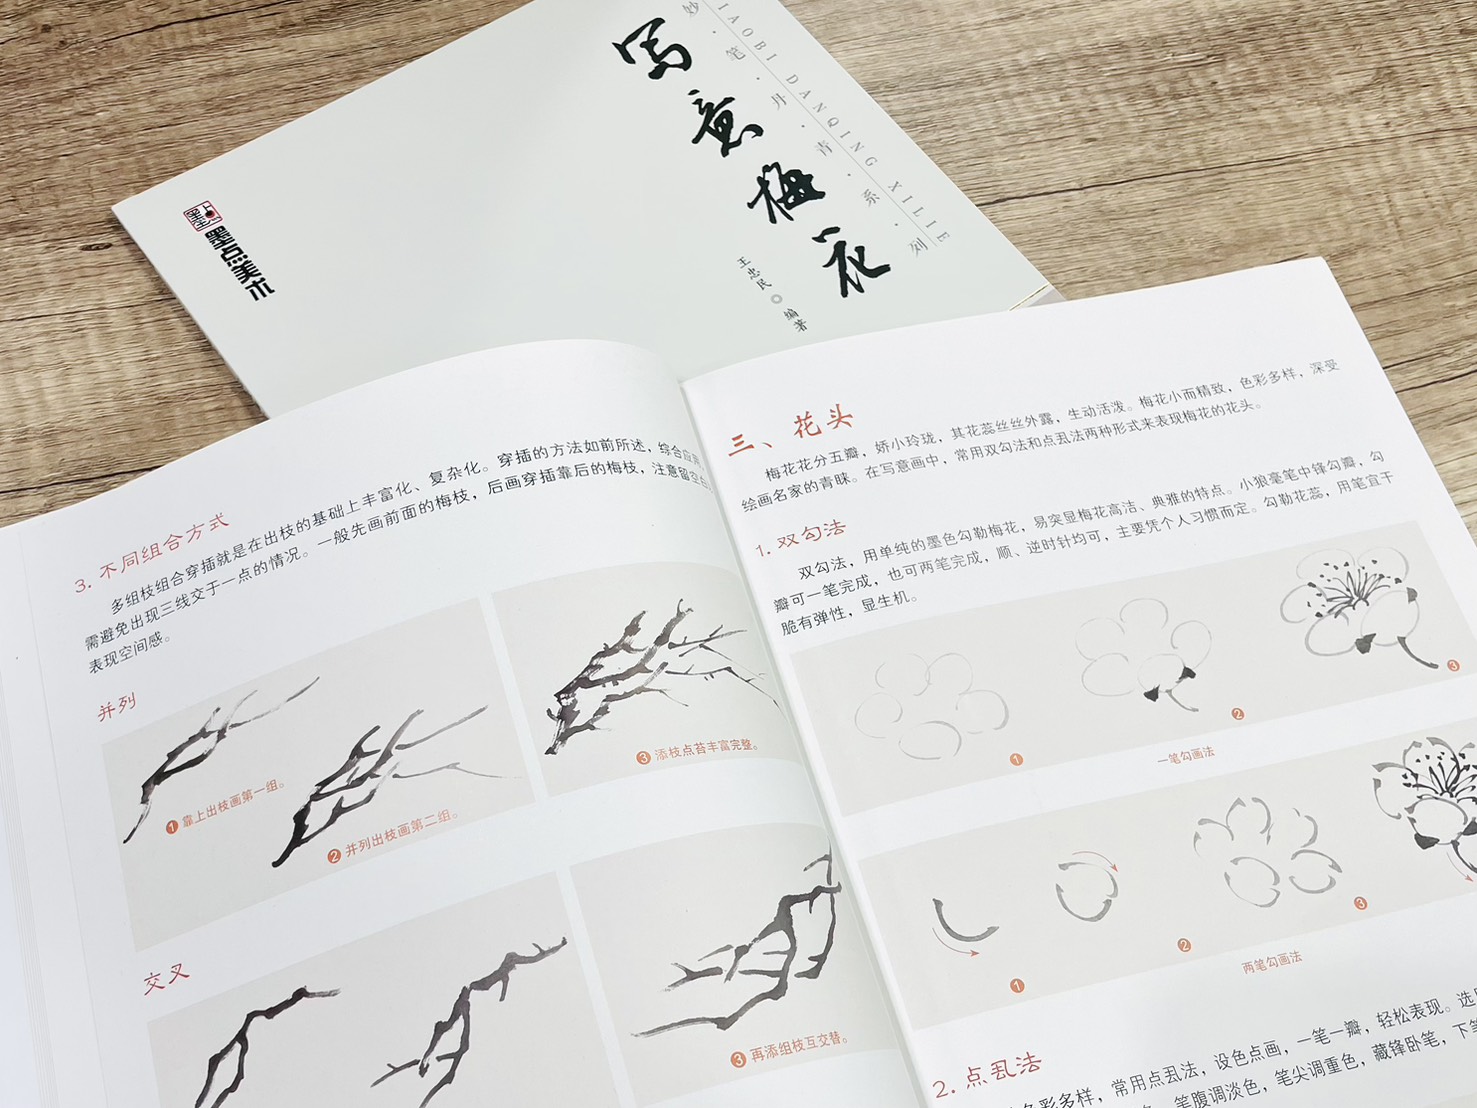 写意梅花
妙·笔·丹·青·系·列
IAOBI DANQING XILIE
王忠民◎编著
墨点
墨点美术
3. 不同组合方式
多组枝组合穿插就是在出枝的基础上丰富化、复杂化。穿插的方法如前所述，综合应用，
需避免出现三线交于一点的情况。一般先画前面的梅枝，后画穿插靠后的梅枝，注意留空白
表现空间感。
并列
1 靠上出枝画第一组。
2 并列出枝画第二组。
3 添枝点苔丰富完整。
交叉
3 再添组枝互交替。
三、花头
梅花花分五瓣，娇小玲珑，其花蕊丝丝外露，生动活泼。梅花小而精致，色彩多样，深受
绘画名家的青睐。在写意画中，常用双勾法和点厾法两种形式来表现梅花的花头。
1. 双勾法
双勾法，用单纯的墨色勾勒梅花，易突显梅花高洁、典雅的特点。小狼毫笔中锋勾瓣，勾
瓣可一笔完成，也可两笔完成，顺、逆时针均可，主要凭个人习惯而定。勾勒花蕊，用笔宜干
脆有弹性，显生机。
1
2
3
一笔勾画法
1
2
3
两笔勾画法
2. 点厾法
色彩多样，常用点厾法，设色点画，一笔一瓣，轻松表现。选
笔腹调淡色，笔尖调重色，藏锋卧笔，下笔